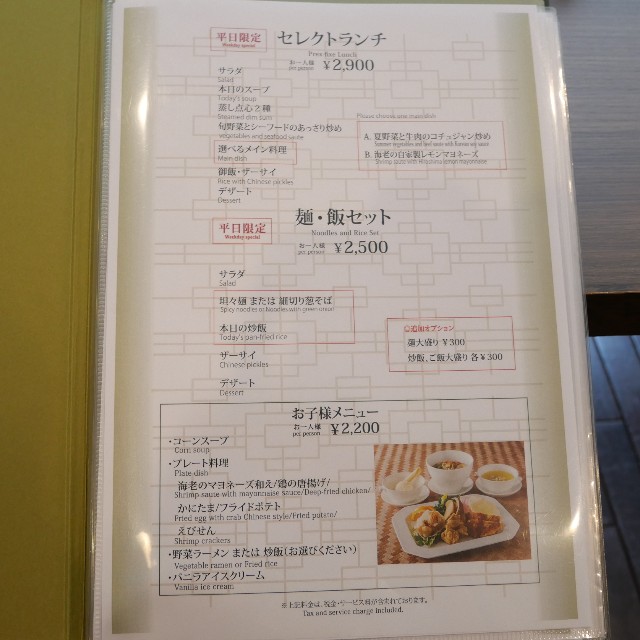 平日限定
Weekday special
セレクトランチ
Prex-fixe Lunch
お一人様
per person
¥2,900
サラダ
Salad
本日のスープ
Today's soup
蒸し点心2種
Steamed dim sum
旬野菜とシーフードのあっさり炒め
Vegetables and seafood saute
選べるメイン料理
Main dish
御飯・ザーサイ
Rice with Chinese pickles
デザート
Dessert
Please choose one main dish
A. 夏野菜と牛肉のコチュジャン炒め
Summer vegetables and beef saute with Korean soy sauce
B. 海老の自家製レモンマヨネーズ
Shrimp saute with Hiroshima lemon mayonnaise
平日限定
Weekday special
麺・飯セット
Noodles and Rice Set
お一人様
per person
¥2,500
サラダ
Salad
坦々麺 または 細切り葱そば
Spicy noodles or Noodles with green onion
本日の炒飯
Today's pan-fried rice
ザーサイ
Chinese pickles
デザート
Dessert
◎追加オプション
麺大盛り ¥300
炒飯、ご飯大盛り 各¥300
お子様メニュー
お一人様
per person
¥2,200
・コーンスープ
Corn soup
・プレート料理
Plate dish
海老のマヨネーズ和え/鶏の唐揚げ/
Shrimp saute with mayonnaise sauce/Deep-fried chicken/
かにたま/フライドポテト
Fried egg with crab Chinese style/Fried potato/
えびせん
Shrimp crackers
・野菜ラーメン または 炒飯(お選びください)
Vegetable ramen or Fried rice
・バニラアイスクリーム
Vanilla ice cream
※上記料金は、税金・サービス料が含まれております。
Tax and service charge included.